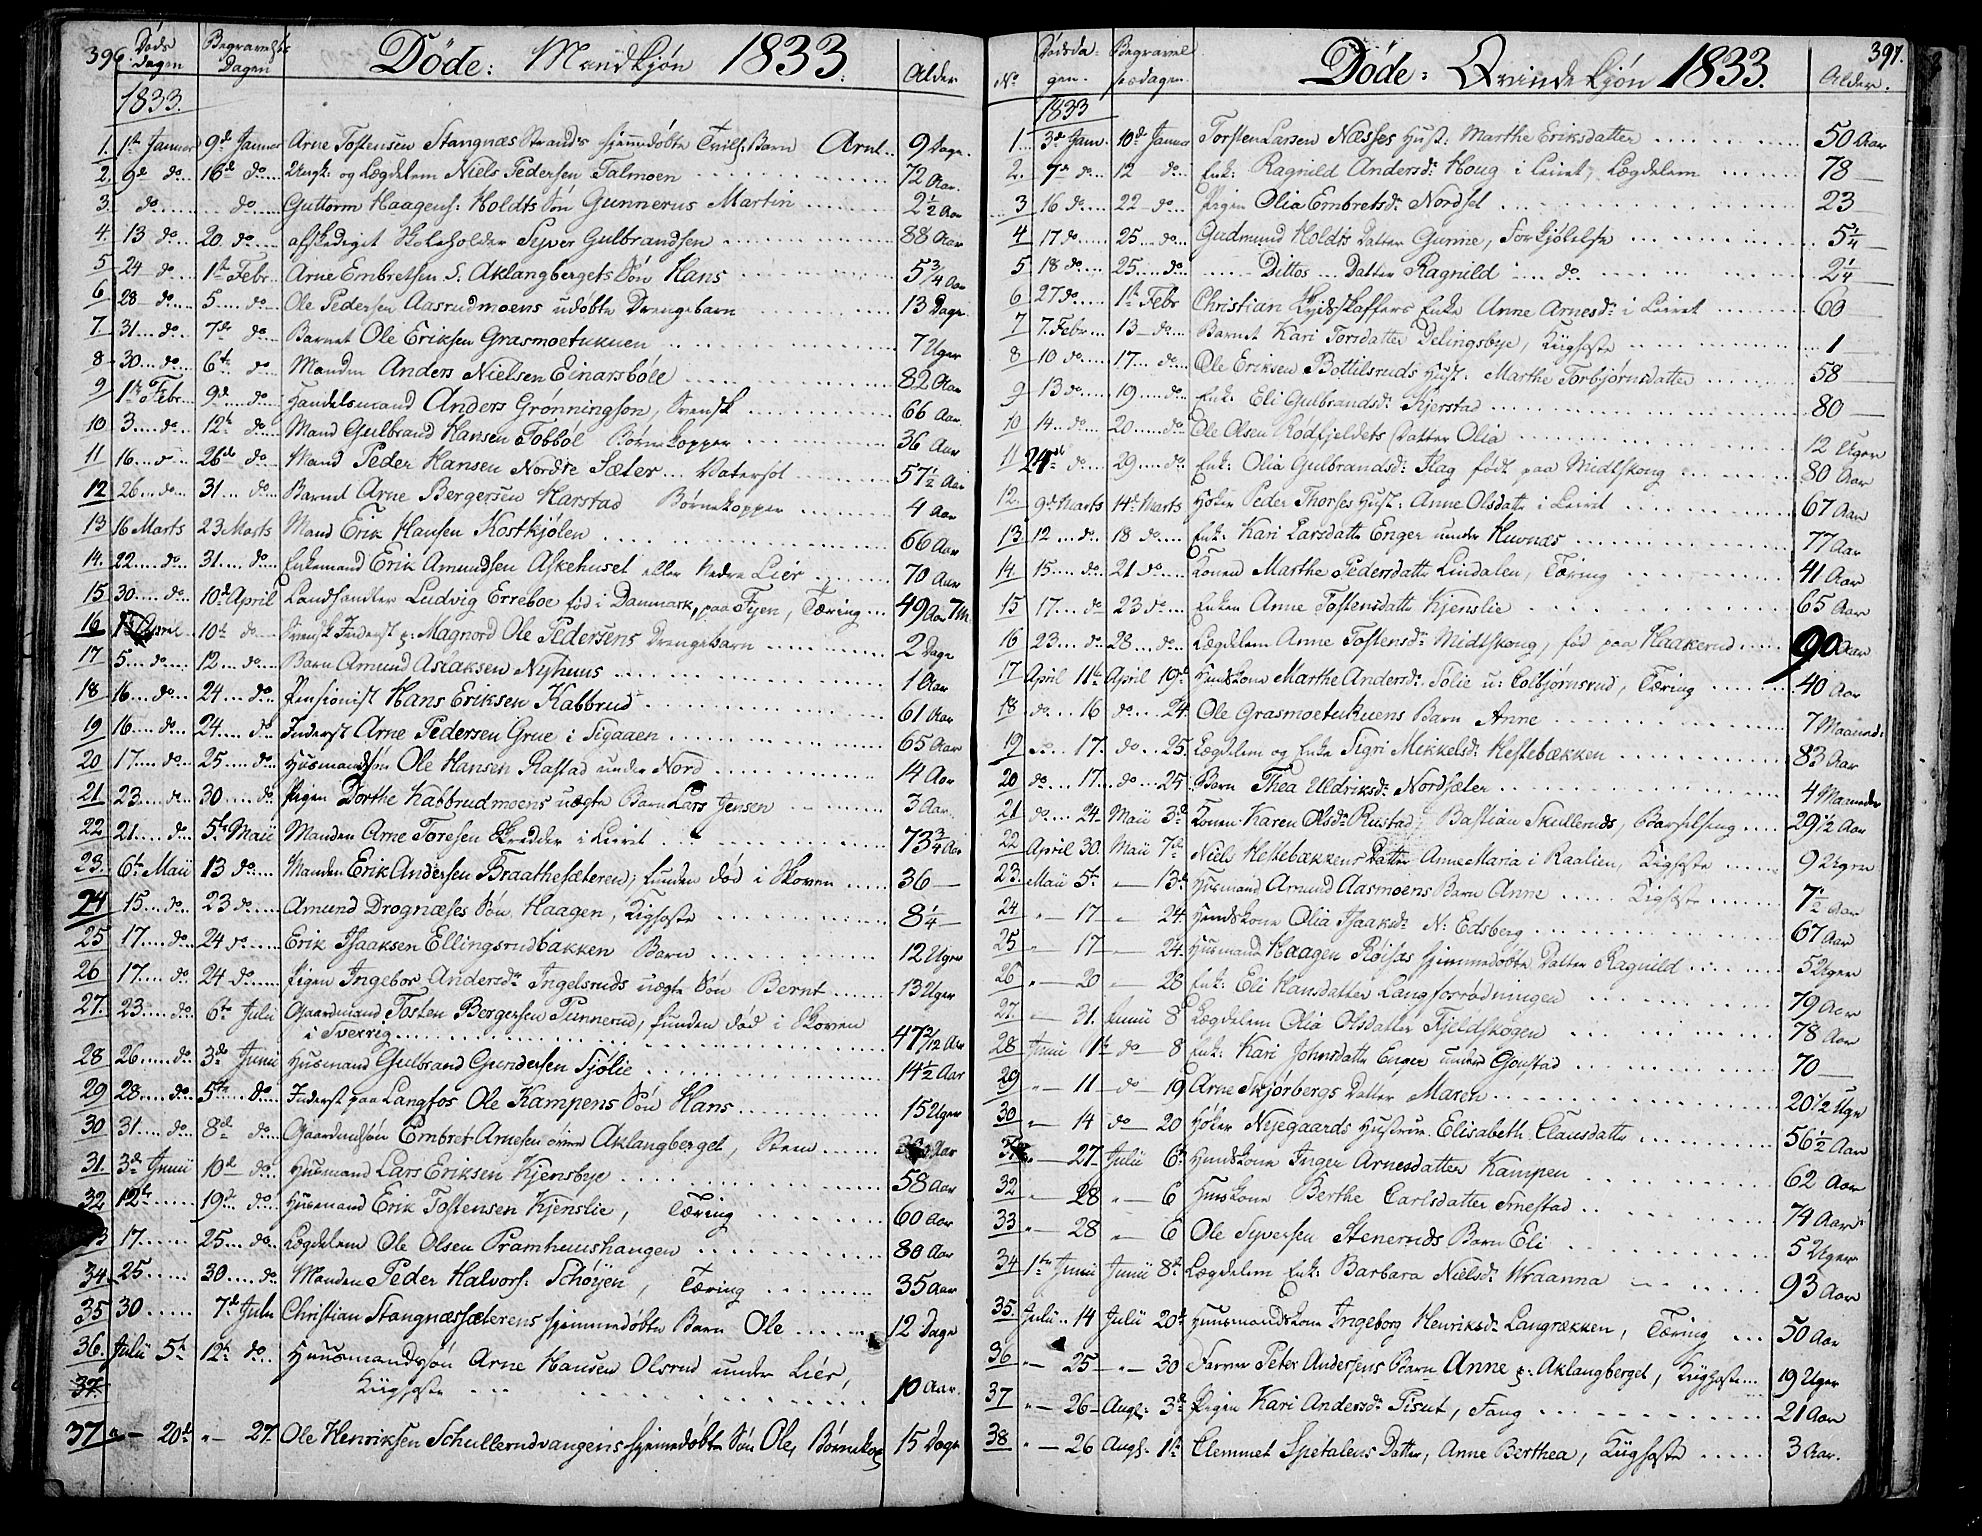 396
Døds Dagen
Begravelses Dagen
Döde: Mandkjøn 1833.
Alder
1833.
1. 1ste Januar 9de Januar Arne Tostensen Stangnæs Strands hjemdøbte Barn Arne .. 9 Dage.
2. 9de do 16de do og Lægdelem Niels Pedersen Talmoen 72 Aar.
3. do do Guttorm Haagens: Holdts Søn Gunnerus Martin 2½ Aar
4. 13 do 20 do afskediget Skoleholder Syver Gulbrandsen 88 Aar
5 24 do 1ste Febr. Arne Embretsen S. Aklangbergets Søn Hans 5¾ Aar
6 28 do 5 do Ole Pedersen Aasrudmoens udøbte Drengebarn 13 Dage
7. 31 do 7de do Barnet Ole Eriksen Grasmoetukuen 7 Uger
8 30 do 6te do Manden Anders Nielsen Einarsböle 82 Aar
9 1ste Febr. 9de do Handelsmand Anders Grønningson, Svensk 66 Aar
10 3 do 12te do Mand Gulbrand Hansen Tobböl Børnekopper 36 Aar
11 16 do 26de do Mand Peder Hansen Nordre Sæter Vatersot 57½ Aar
12 26 do 31 do Barnet Arne Bergersen Harstad Børnekopper 4 Aar
13 16 Marts 23 Marts Mand Erik Hansen Kostkjølen 66 Aar
14. 22 do 31 do Enkemand Erik Amundsen Askehuset eller Nedre Lier 70 Aar
15 30 do 10de April Landhandler Ludvig Erreboe fød i Danmark, paa Fyen, Tæring 49 Aar 7 M.
16 April 10de do Svensk Inderst p: Magnord Ole Pedersens Drengebarn 2 Dage
17 5 do 12 do Barn Amund Aslaksen Nyhuus 1 Aar
18 16 do 24 do Pensionist Hans Eriksen Kabbrud 61 Aar
19 16 do 24 do Inderst Arne Pedersen Grue i Sigaaen 65 Aar
20 17 do 25 do Husmandssøn Ole Hansen Rastad under Nord 14 Aar
21 23 do 30 do Pigen Dorthe Kabbrudmoens uægte Barn Lars Jensen 3 Aar
22 21 do 5te Maii Manden Arne Toresen Skredder i Leiret 73¾ Aar
23. 6te Maii 13 do Manden Erik Andersen Braathesæteren, funden død i Skoven 36 —
24 15 do 23 do Amund Drognæses Søn Haagen, Kighoste 8¼ —
25 17 do 24 do Erik Isaaksen Ellingsrudbakken Barn 12 Uger
26 17 do 24 do Pigen Ingebor Andersdr Ingelsruds uægte Søn Bernt 13 Uger
27. 23 do 6te Juli Gaardmand Tosten Bergersen Punnerud, funden død i Skoven
i Sverrig 47 2/12 Aar
28 26 do 3de Junii Husmand Gulbrand Gundersen Sjölie 14½ Aar
29 28 do 5te do Inderst paa Langfos Ole Kampens Søn Hans 15 Uger
30 31 do 8de do Gaardmdsøn Embret Arnesen Aklangberget, Steen Aar
31. 3de Junii 10de do Husmand Lars Eriksen Kjensbye 58 Aar
32 12te 19de do Husmand Erik Tostensen Kjenslie, Tæring 60 Aar
33 17 25 do Lægdelem Ole Olsen Pramhuushaugen 80 Aar
34 25 30 do Manden Peder Halvors: Schøyen, Tæring 35 Aar
35 30 7de Julii Christian Stangnæssæterens hjemmedøbte Barn Ole 12 Dage
36. Julii 5te 12te do Huusmandssøn Arne Hansen Olsrud under Lier,
37. Kiighoste 10 Aar.
37. " — 20de " — 27. Ole Henriksen Schullerudvangens hjemedøbte Søn Ole, Børnekop 15 Dage
397.
No
Dødsdagen.
Begravelsesdagen
Döde: Qvindekjön 1833.
Alder.
1833
1. 3de Janv. 10de Januar Torsten Larsen Næsses Hust: Marthe Eriksdatter 50 Aar
2. 7de do 12 do Enk: Ragnild Andersd: Houg i Leiret, Lægdelem 78 —
3 16 do 22 do Pigen Olia Embretsdr Nordset 23 —
4 17 do 25 do Gudmund Holdts Datter Gunne, Forkjølelse 5¼ —
5 18 do 25 do Dittos Datter Ragnild do 2¼ —
6 27 do 1ste Febr Christian Hydskaffers Enke Anne Arnesdr i Leiret 60 —
7 7. Febr. 13 do Barnet Kari Torsdatter Delingsbye, Kiighoste 1 —
8 10 do 17 do Ole Eriksen Bottilsruds Hust: Marthe Torbjørnsdatter 58
9 13 do 19 do Enk: Eli Gulbrandsd: Kjerstad 80 —
10 14 do 20 do Ole Olsen Rödfjeldets Datter Olia 12 Uger
11 24de do 29 do Enk: Olia Gulbrandsd: Flag født paa Midtskong 80 Aar
12. 9de Marts 14de Marts Høker Peder Thorses Hust: Anne Olsdattr i Leiret 67 Aar
13. 12 do 18 do Enk: Kari Larsdattr Enger under Huvnæs 77 Aar
14 15 do 21 do Konen Marthe Pedersdattr Lindalen, Tæring 41 Aar
15 17 do 23 do Enken Anne Tostensdattr Kjenslie 65 Aar
16 23 do 28 do Lægdelem Anne Tostensdr Midtskong, fød paa Haakerud 90 Aar
17 April 11te April 19de Huuskone Marthe Andersdr Tolie u: Colbjørnsrud, Tæring 40 Aar
18 do 16 do 24 Ole Grasmoetukuens Barn Anne 7 Maaned:
19 do 17. do 25. Lægdelem og Enke Sigri Mikkelsdr Hestebækken 83 Aar
20 do 17. do 25 Barn Thea Uldriksdr Nordsæter 4 Maaneder
21 do 24 Maii 3de Konen Karen Olsdr Rustad, Bastian Skulleruds, Barselseng 29½ Aar
22 April 30 Maii 7de Niels Hestebækkens Datter Anne Maria i Raalien, Kighoste 9 Ugen
23. Maii 5te — 13de Husmand Amund Aasmoens Barn Anne Kighoste 7½ Aar
24 " — 17 — " 24 Huuskone Olia Isaaksdr N: Edsberg 67 Aar
25 " — 17 — " 24. Husmand Haagen Röisæs hjemmedøbte Datter Ragnild 5 Uger
26 " — 20 " — 28 Enk: Eli Hansdatter Langforsrödningen 79 Aar
27. " — 31. Junii 8 Lægdelem Olia Olsdatter Fjeldskogen 78 Aar
28 Junii 1ste do — 8 Enk: Kari Johnsdattr Enger under Goustad 70 —
29 " — 11 — do — 19 Arne Skjørbergs Datter Maren 20½ Uger
30 " — 14 do — 20 Høker Nyegaards Hustrue Elisabeth Clausdattr 56½ Aar
31 " — 27 Julii 6te Huuskone Inger Arnesdatter Kampen 62 Aar
32 " — 28 " — 6 Huuskone Berthe Carlsdatter Smestad 74 Aar
33 " — 28 " 6 Ole Syversen Steneruds Barn Eli 5 Uger
34 1ste Junii Junii 8de Lægdelem Enk: Barbara Nielsdr Wraanna 93 Aar
35. Julii 14 Julii 20de Huusmandskone Ingeborg Henriksdr Langrækken, Tæring 50 Aar
36 " — 25 — " — 30 Farver Peter Andersens Barn Anne p: Aklangberget, Kiighoste 19 Uger
37 " — 26 — Augs: 3de Pigen Kari Andersdr Pisut, Fang 21 Aar
38 " — 26 Augs: 1ste Clemmet Spetalens Datter, Anne Berthea, Kiighoste 3 Aar.